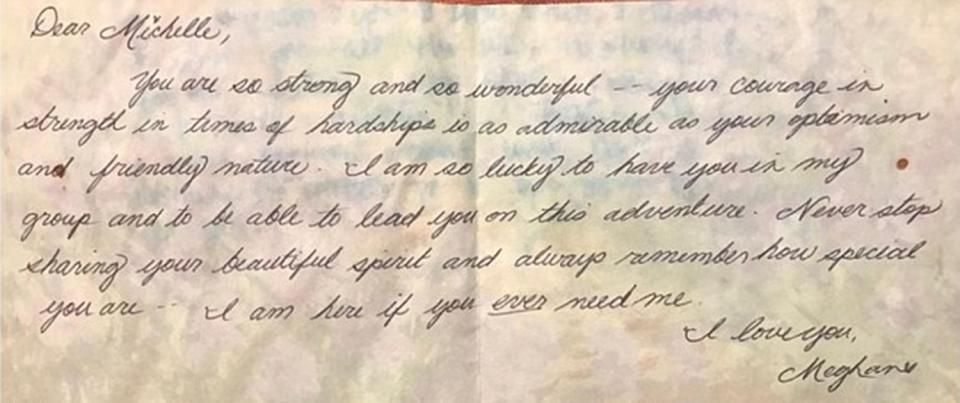 Dear Michelle,
You are so strong and so wonderful -- your courage in
strength in times of hardships is as admirable as your optimism
and friendly nature. I am so lucky to have you in my
group and to be able to lead you on this adventure. Never stop
sharing your beautiful spirit and always remember how special
you are -- I am here if you ever need me.
I love you,
Meghan